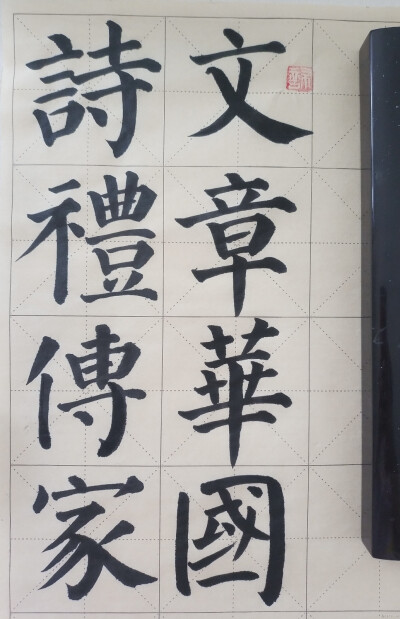 文章華國
詩禮傳家